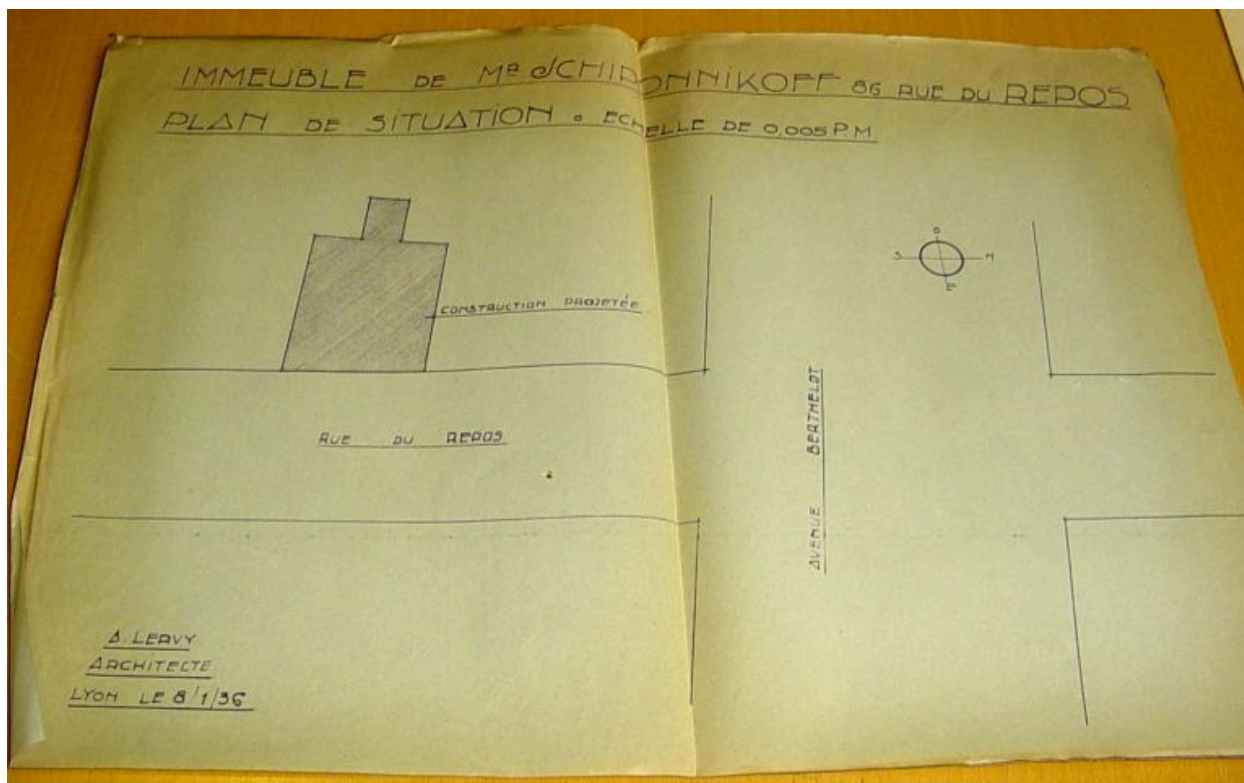 IMMEUBLE DE MR SCHIRONNIKOFF 86 RUE DU REPOS
PLAN DE SITUATION . ECHELLE DE 0,005 P.M.
O
S N
E
CONSTRUCTION PROJETÉE
AVENUE BERTHELOT
RUE DU REPOS
A. LERVY
ARCHITECTE
LYON LE 8/1/36